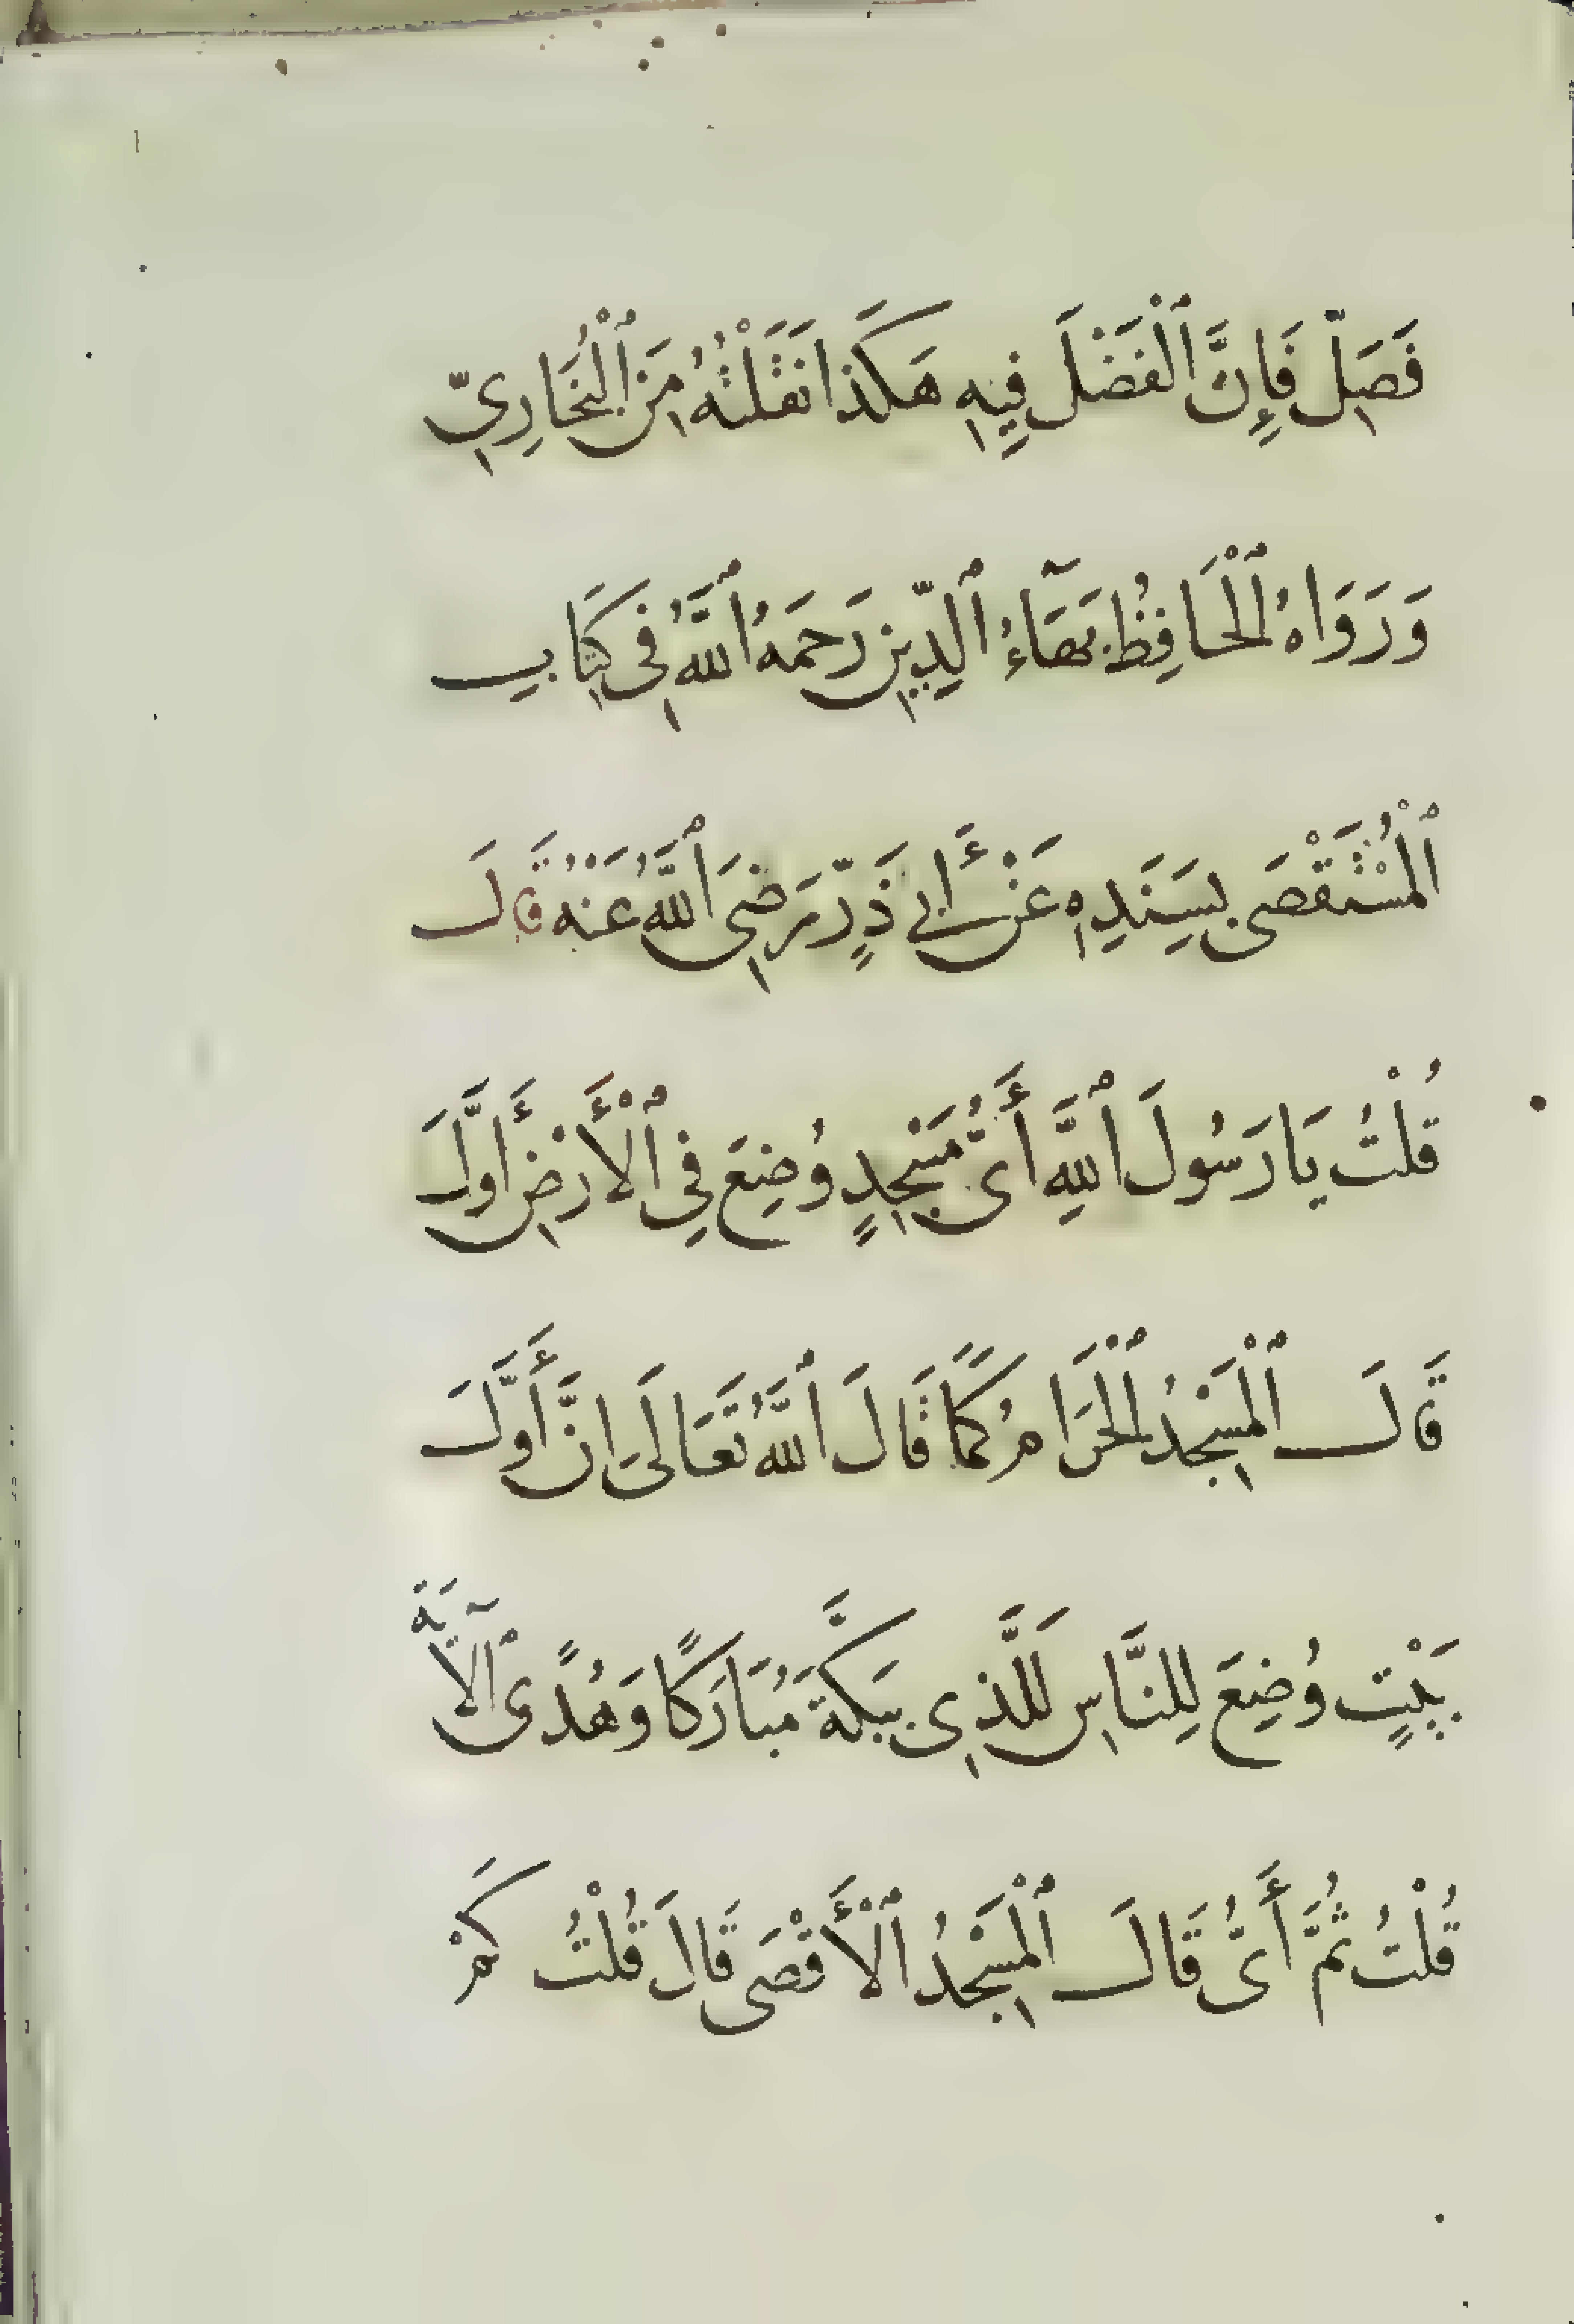 فَصَلِّ فَإِنَّ ٱلْفَضْلَ فِيهِ هَكَذَا نَقَلْتُهُ مِنَ ٱلْبُخَارِيِّ
وَرَوَاهُ ٱلْحَافِظُ بَهَآءُ ٱلدِّينِ رَحِمَهُ ٱللَّهُ فِى كِتَابِ
ٱلْمُسْتَقْصَى بِسَنَدِهِ عَنْ أَبِى ذَرٍّ رَضِىَ ٱللَّهُ عَنْهُ قَالَ
قُلْتُ يَا رَسُولَ ٱللَّهِ أَىُّ مَسْجِدٍ وُضِعَ فِي ٱلْأَرْضِ أَوَّلَ
قَالَ ٱلْمَسْجِدُ ٱلْحَرَامُ كَمَا قَالَ ٱللَّهُ تَعَالَى إِنَّ أَوَّلَ
بَيْتٍ وُضِعَ لِلنَّاسِ لَلَّذِى بِبَكَّةَ مُبَارَكًا وَهُدًى ٱلْآيَةَ
قُلْتُ ثُمَّ أَىُّ قَالَ ٱلْمَسْجِدُ ٱلْأَقْصَى قَالَ قُلْتُ كَمْ